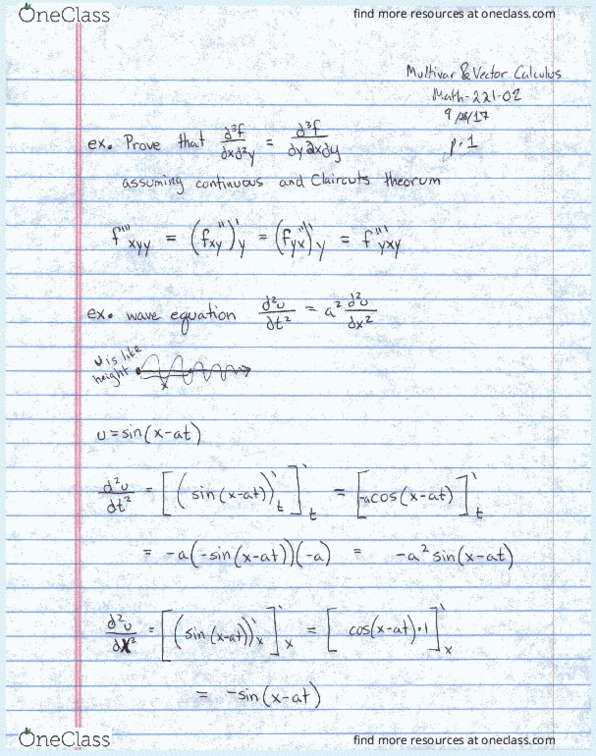 OneClass
find more resources at oneclass.com
Multivar & Vector Calculus
Math-221-02
p.1
ex. Prove that d³f/dxd²y = d³f/dydxdy
assuming continuous and Claircuts theorum
f'''xyy = (f''xy)'y = (f''yx)'y = f'''yxy
ex. wave equation d²u/dt² = a² d²u/dx²
u is like
height
x
u=sin(x-at)
d²u/dt² = [(sin(x-at))'t]'t = [-acos(x-at)]'t
= -a(-sin(x-at))(-a) = -a²sin(x-at)
d²u/dx² = [(sin(x-at))'x]'x = [cos(x-at)·1]'x
= -sin(x-at)
OneClass
find more resources at oneclass.com